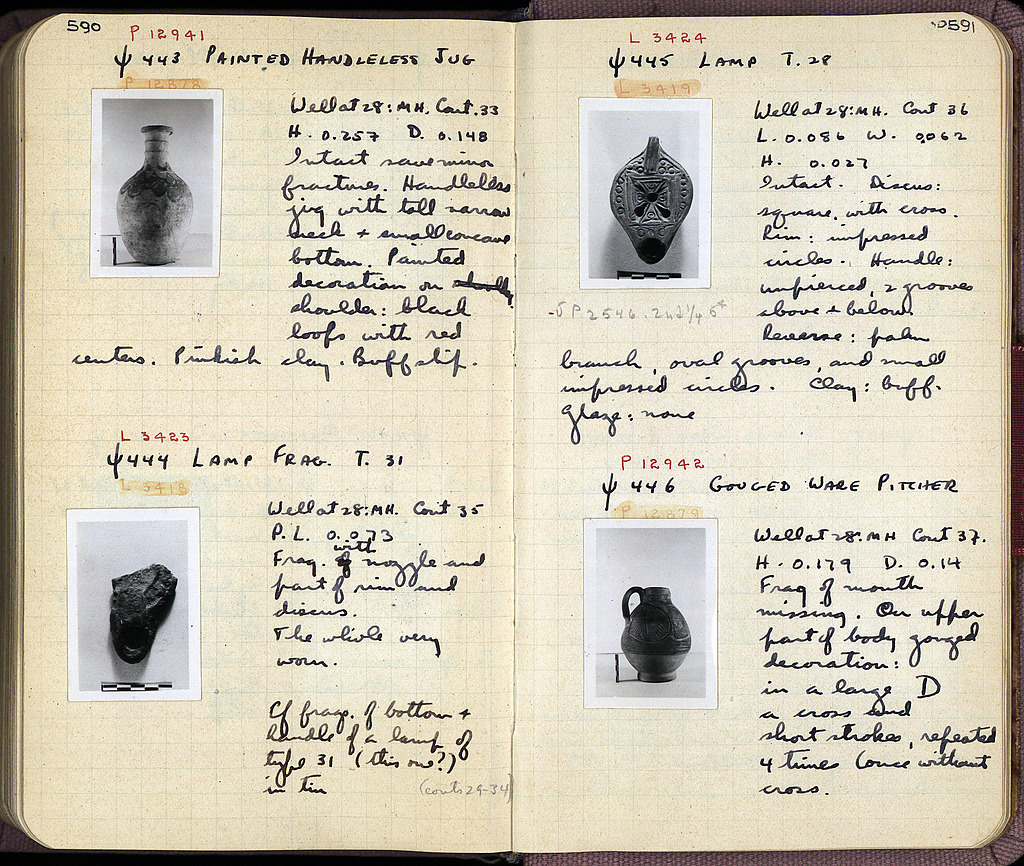 590
P 12941
Ψ 443 PAINTED HANDLELESS JUG
P 12878
Well at 28:MH. Cont. 33
H. 0.257 D. 0.148
Intact save minor
fractures. Handleless
jug with tall narrow
neck + small concave
bottom. Painted
decoration on
shoulder: black
loops with red
centers. Pinkish clay. Buff slip.
L 3423
Ψ 444 LAMP FRAG. T. 31
L 3418
Well at 28:MH. Cont 35
P. L. 0.073
with
Frag. of nozzle and
part of rim and
discus.
The whole very
worn.
Cf frags. of bottom +
handle of a lamp of
type 31 (this one?)
in tin (conts 29-34)
591
L 3424
Ψ 445 LAMP T. 28
L 3419
Well at 28:MH. Cont 36
L. 0.086 W. 0.062
H. 0.027
Intact. Discus:
square, with cross.
Rim: impressed
circles. Handle:
unpierced, 2 grooves
above + below.
Reverse: palm
branch, oval grooves, and small
impressed circles. Clay: buff.
Glaze: none
P 2546.
P 12942
Ψ 446 GOUGED WARE PITCHER
P 12879
Well at 28:MH Cont 37.
H. 0.179 D. 0.14
Frag of mouth
missing. On upper
part of body gouged
decoration:
in a large D
a cross and
short strokes, repeated
4 times (once without
cross.